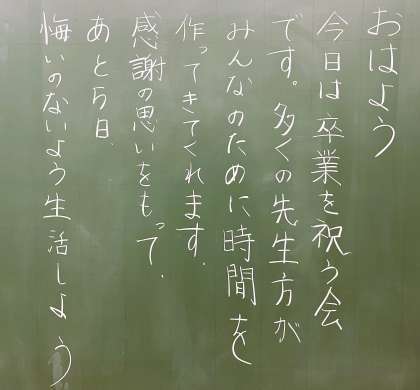 おはよう
今日は卒業を祝う会
です。多くの先生方が
みんなのために時間を
作ってきてくれます.
感謝の思いをもって.
あと5日.
悔いのないよう生活しよう